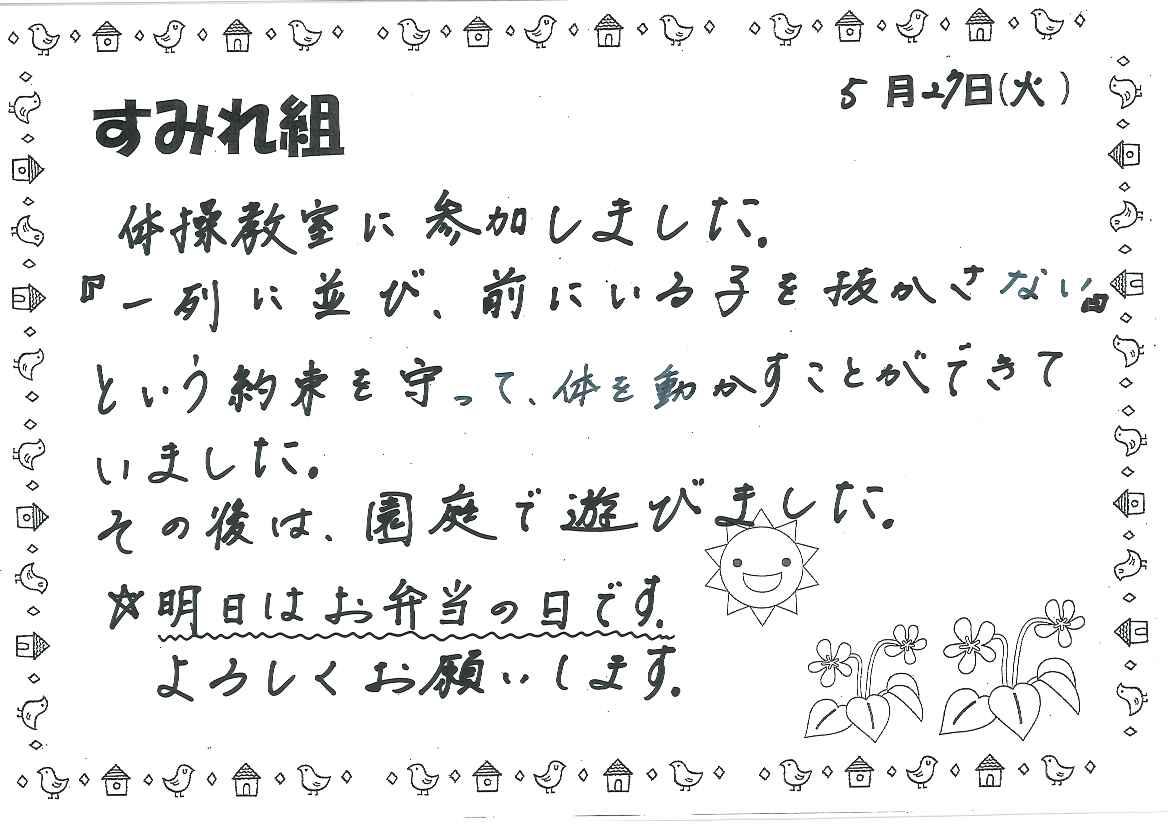 5月27日(火)
すみれ組
体操教室に参加しました。
『一列に並び、前にいる子を抜かさない』
という約束を守って、体を動かすことができて
いました。
その後は、園庭で遊びました。
☆明日はお弁当の日です。
よろしくお願いします。